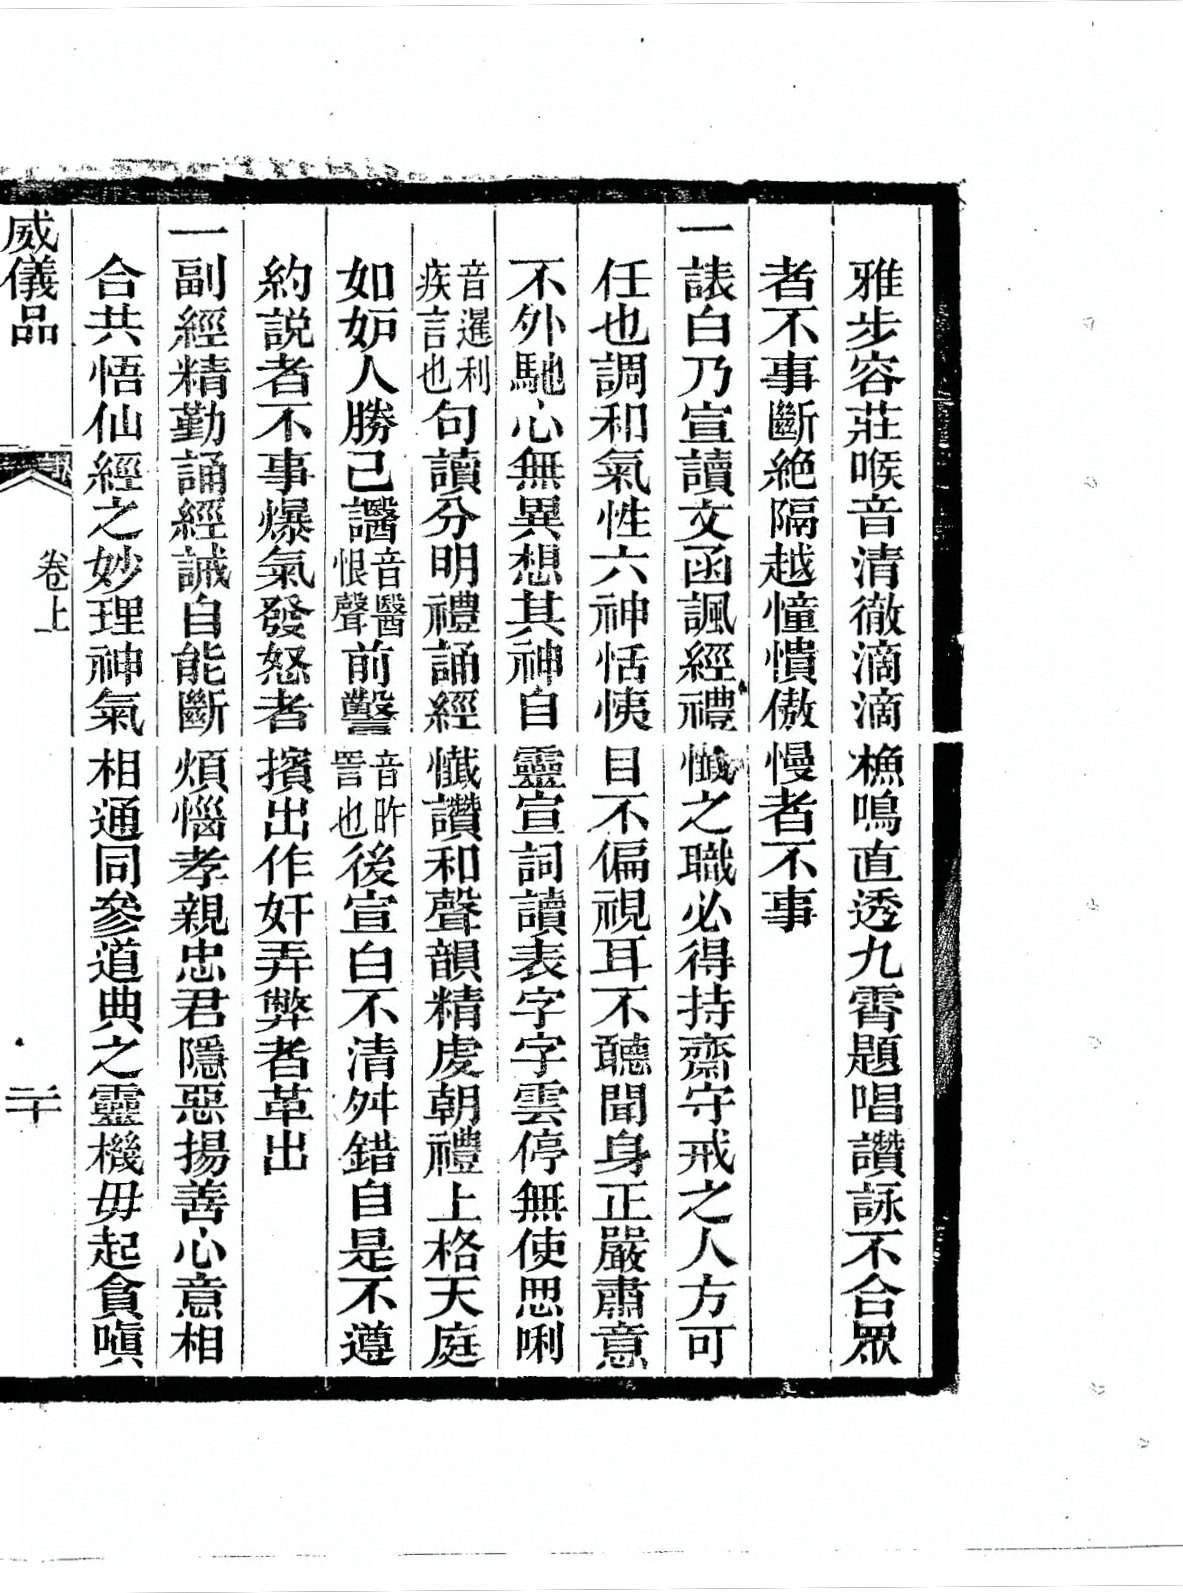 雅步容莊喉音清徹滴滴樵鳴直透九霄題唱讚詠不合眾
者不事斷絶隔越憧憒傲慢者不事
一諘白乃宣讀文函諷經禮懺之職必得持齋守戒之人方可
任也調和氣性六神恬恞目不偏視耳不聽聞身正嚴肅意
不外馳心無異想其神自靈宣詞讀表字字雲停無使思唎
音暹利疾言也句讀分明禮誦經懺讚和聲韻精虔朝禮上格天庭
如妒人勝己譩音醫恨聲前謷音昨詈也後宣白不清舛錯自是不遵
約説者不事爆氣發怒者擯出作奸弄弊者革出
一副經精勤誦經誠自能斷煩惱孝親忠君隱惡揚善心意相
合共悟仙經之妙理神氣相通同參道典之靈機毋起貪嗔
威儀品 卷上 二十